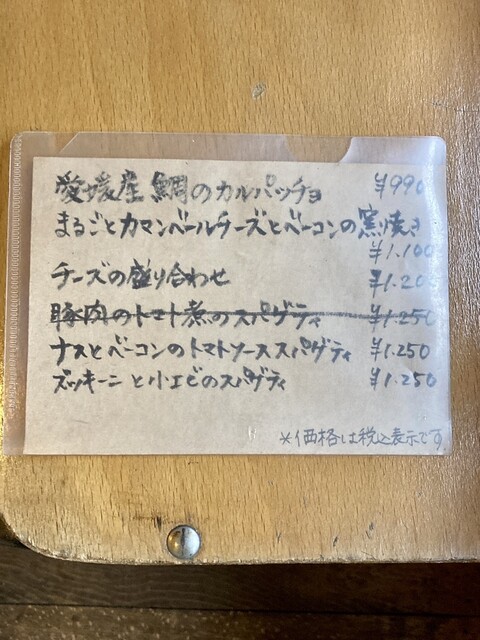 愛媛産 鯛のカルパッチョ ¥990
まるごとカマンベールチーズとベーコンの窯焼き
¥1.100
チーズの盛り合わせ ¥1.205
豚肉のトマト煮のスパゲティ ¥1.250
ナスとベーコンのトマトソーススパゲティ ¥1.250
ズッキーニと小エビのスパゲティ ¥1.250
*価格は税込表示です